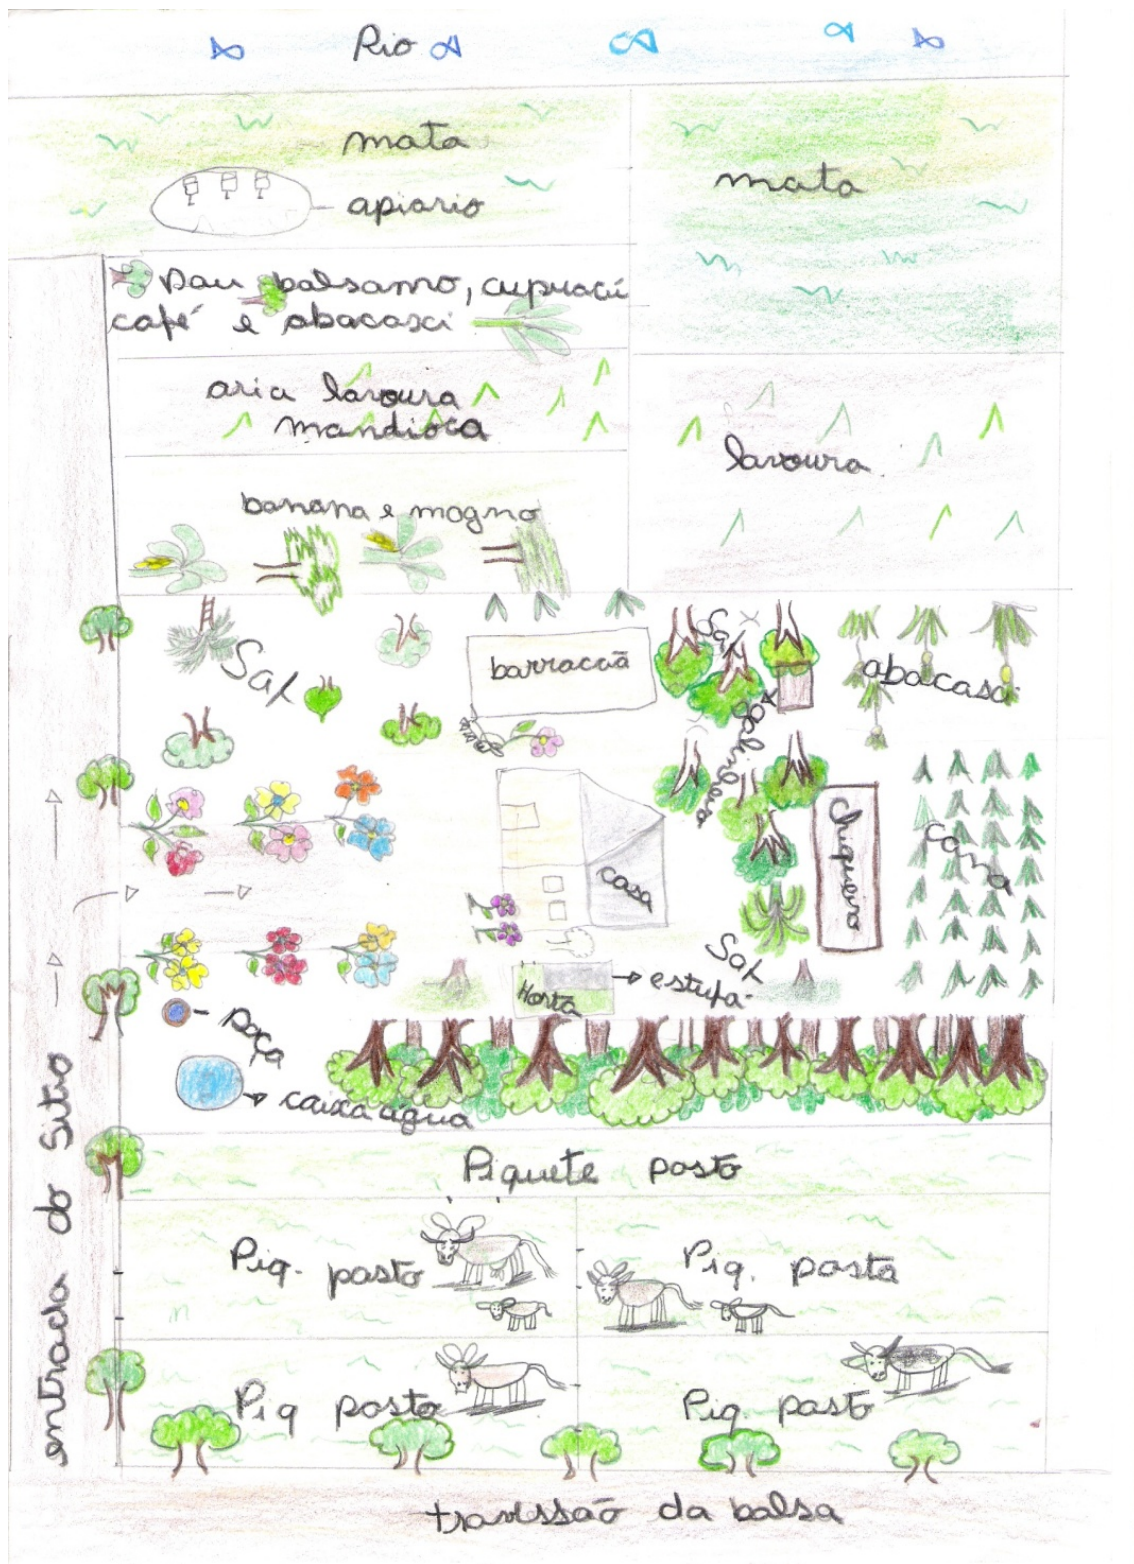 Rio
mata
apiario
mata
Pau balsamo, cupuaçú
café e abacaxi
aria lavoura
mandioca
lavoura
banana e mogno
Saf
barracão
Saf
galinheiro
abacaxi
casa
chiqueiro
cana
Saf
Horta
estufa
poço
caixa água
entrada do Sitio
Piquete pasto
Piq. pasto
Piq. pasto
Piq pasto
Piq. pasto
travessão da balsa